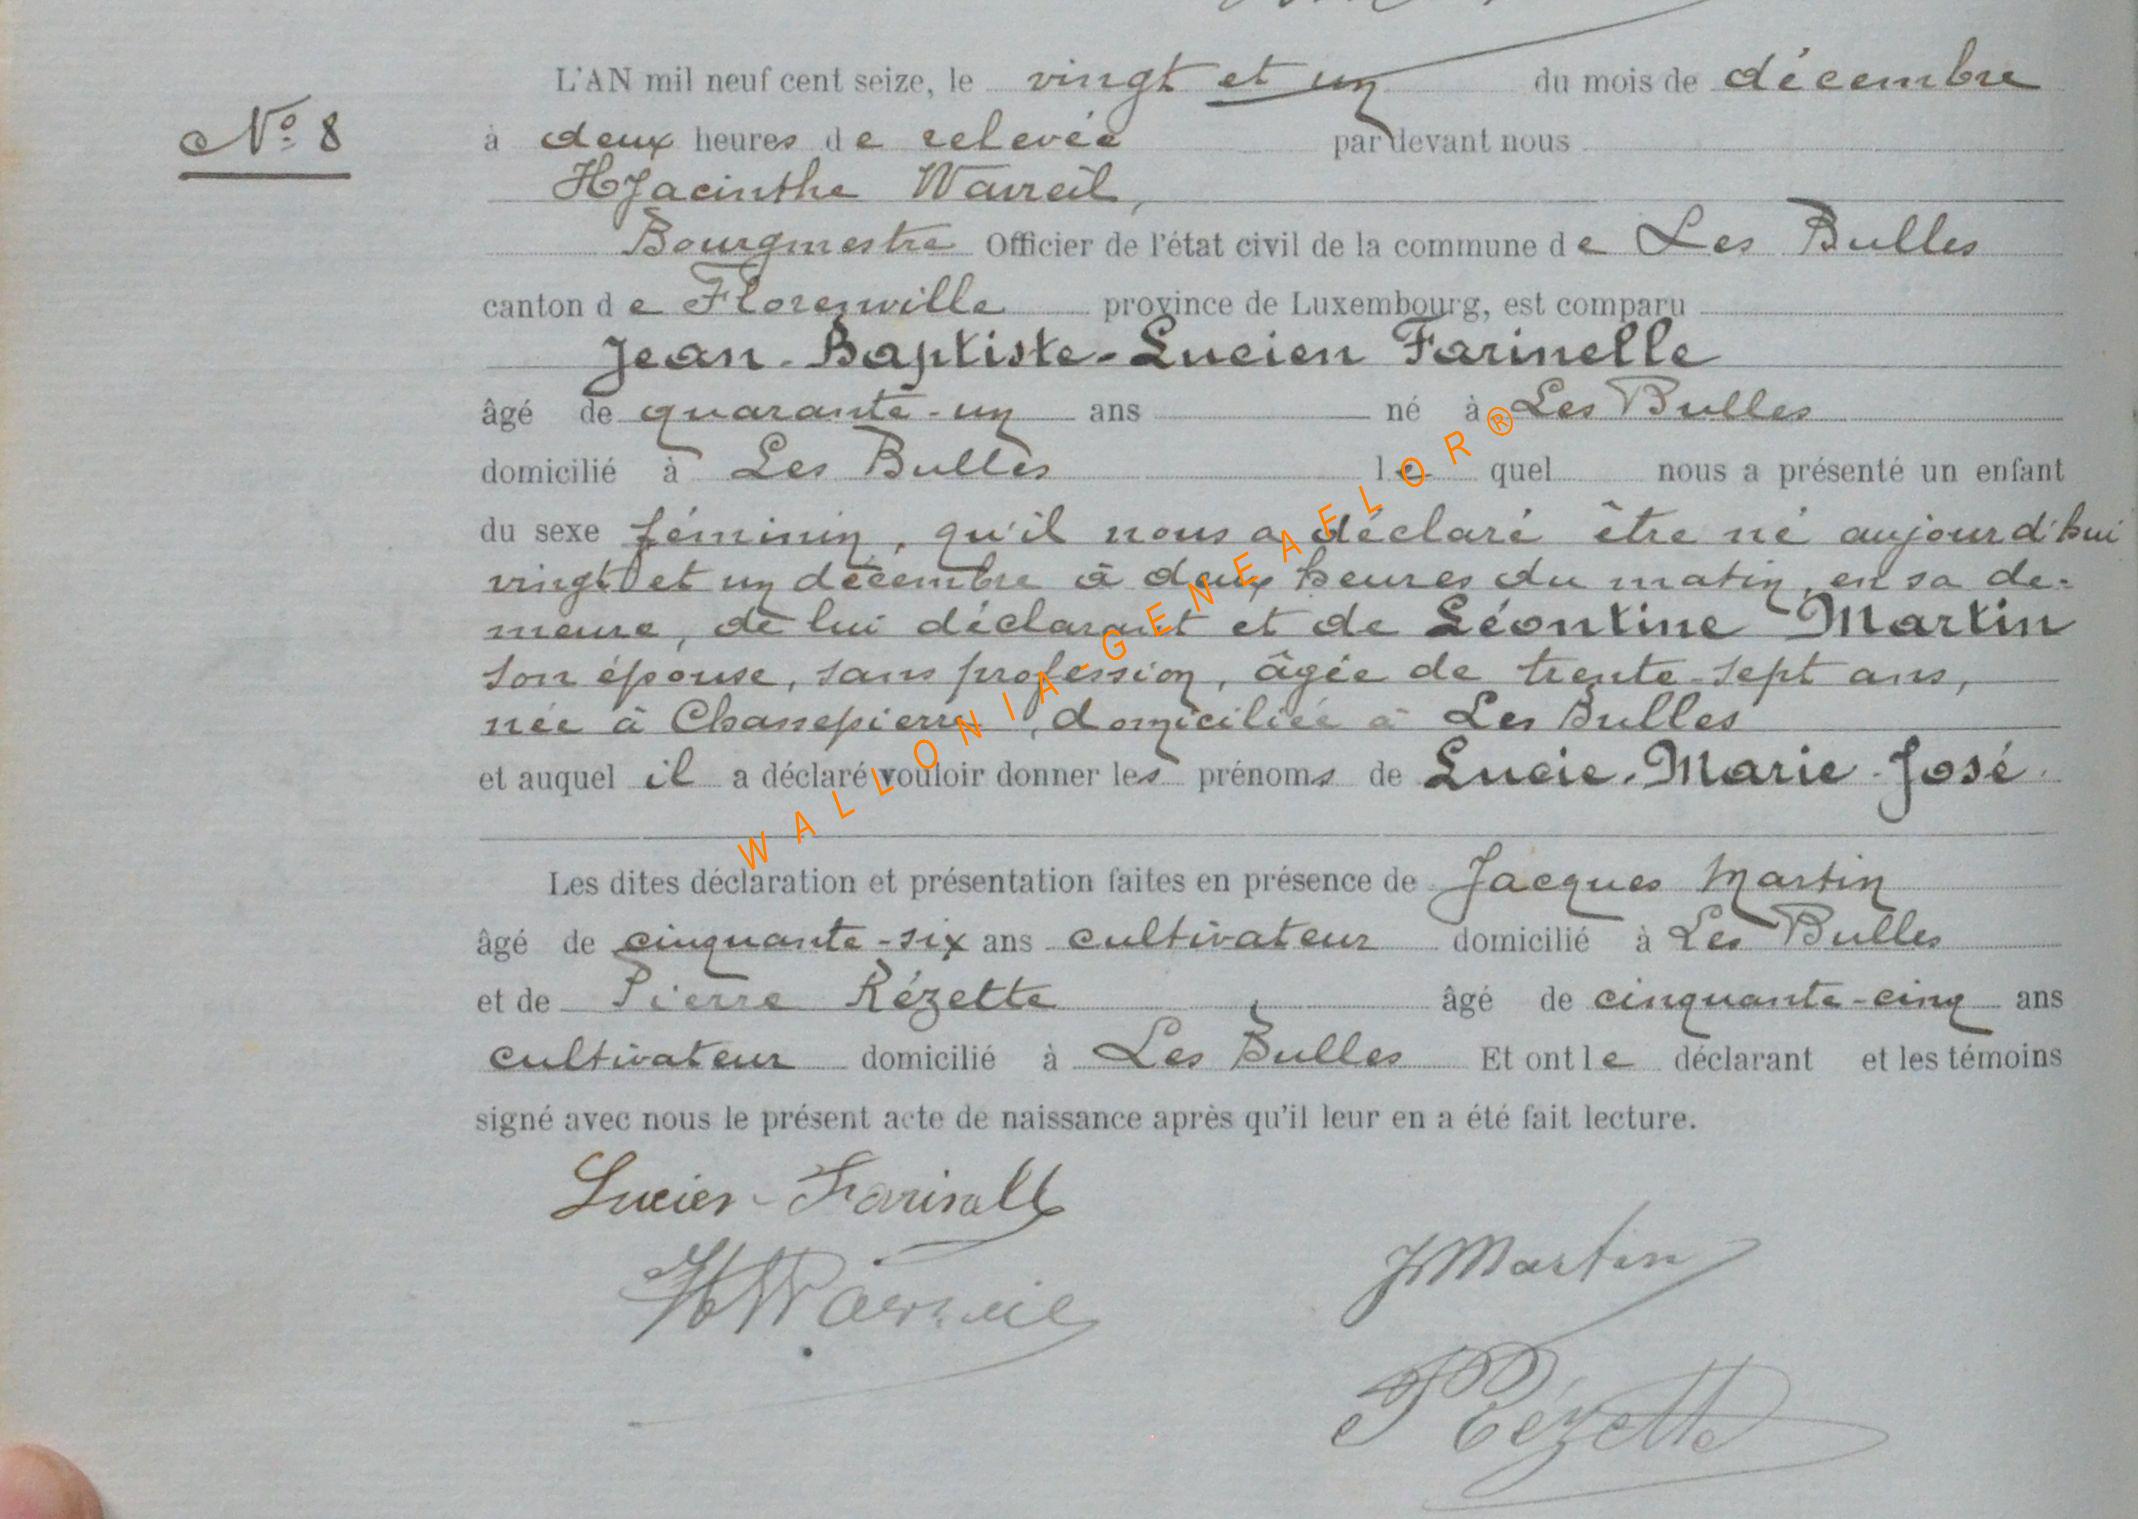 L'AN mil neuf cent seize, le vingt et un du mois de décembre
N° 8
à deux heures de relevée par devant nous
Hyacinthe Wavreil,
Bourgmestre Officier de l'état civil de la commune de Les Bulles
canton de Florenville province de Luxembourg, est comparu
Jean-Baptiste-Lucien Farinelle
âgé de quarante-un ans né à Les Bulles
domicilié à Les Bulles lequel nous a présenté un enfant
du sexe féminin, qu'il nous a déclaré être né aujourd'hui
vingt et un décembre à deux heures du matin, en sa de-
meure, de lui déclarant et de Léontine Martin
son épouse, sans profession, âgée de trente-sept ans,
née à Chassepierre, domiciliée à Les Bulles
et auquel il a déclaré vouloir donner les prénoms de Lucie-Marie-José.
WALLONIA-GENEAELOR®
Les dites déclaration et présentation faites en présence de Jacques Martin
âgé de cinquante-six ans cultivateur domicilié à Les Bulles
et de Pierre Rézette, âgé de cinquante-cinq ans
cultivateur domicilié à Les Bulles Et ont le déclarant et les témoins
signé avec nous le présent acte de naissance après qu'il leur en a été fait lecture.
Lucien Farinelle
J Martin
P Rézette